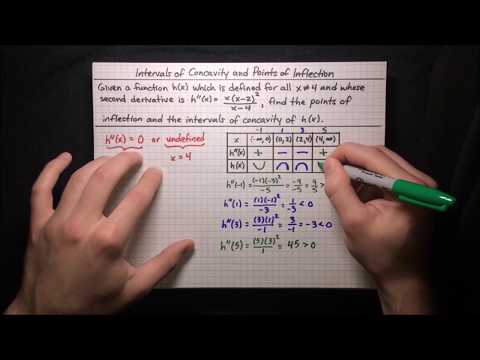 Intervals of Concavity and Points of Inflection
Given a function h(x) which is defined for all x≠4 and whose
second derivative is h"(x) = x(x-2)²/x-4, find the points of
inflection and the intervals of concavity of h(x).
h"(x) = 0 or undefined
x = 4
-1 1 3 5
x (-∞,0) (0,2) (2,4) (4,∞)
h"(x) + − − +
h(x)
h"(-1) = (-1)(-3)²/-5 = -9/-5 = 9/5 >
h"(1) = (1)(-1)²/-3 = 1/-3 < 0
h"(3) = (3)(1)²/-1 = 3/-1 = -3 < 0
h"(5) = (5)(3)²/1 = 45 > 0